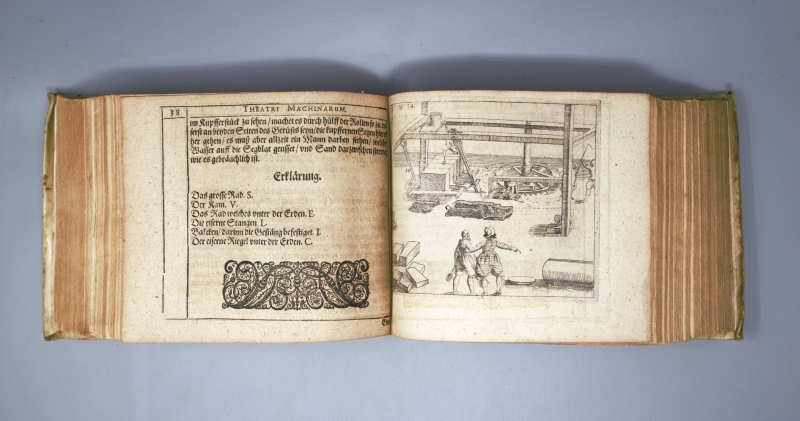 38
THEATRI MACHINARUM.
im Kupfferstück zu sehen/ machet es durch hülff der Rollen so zu
serst an beyden Seiten des Gerüsts seyn/ die kupffernen Segen
her gehen/ es muß aber allzeit ein Mann darbey stehen/ welcher
Wasser auff die Segblat geusset/ vnd Sand darzwischen
wie es gebräuchlich ist.
Erklärung.
Das grosse Rad. S.
Der Kam. V.
Das Rad welches vnter der Erden. E.
Die eiserne Stangen. L.
Balcken/ darum die Gestäng befestiget. I.
Der eiserne Riegel vnter der Erden. C.